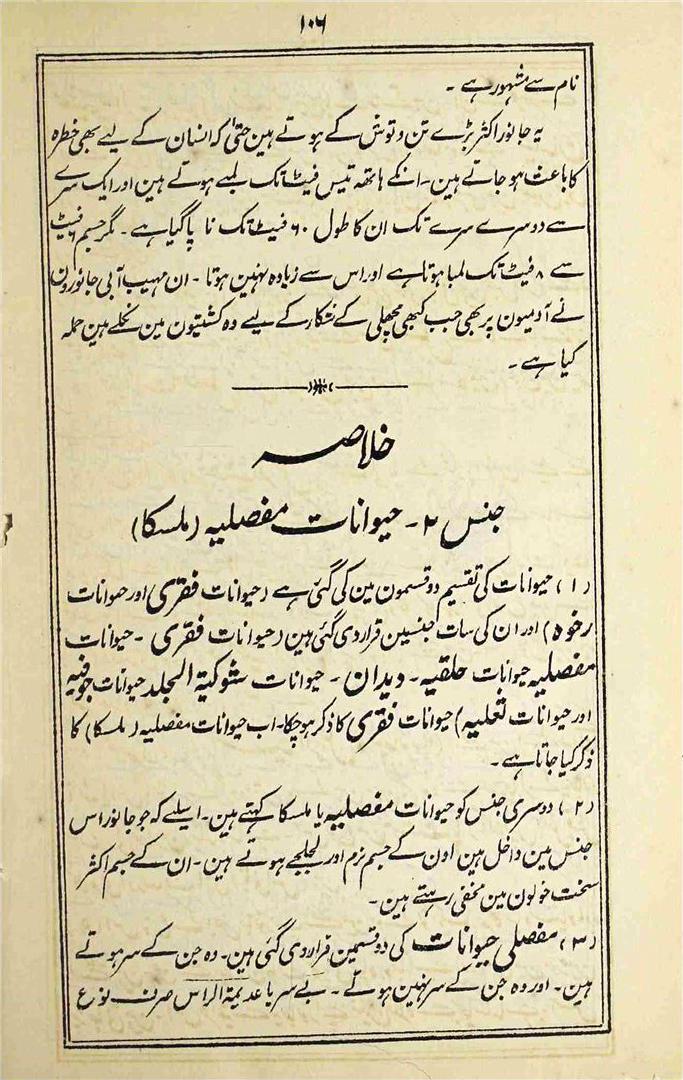 ۱۰۶
نام سے مشہور ہے ۔
یہ جانور اکثر بڑے تن و توش کے ہوتے ہین حتیٰ کہ انسان کے لیے بھی خطرہ
کا باعث ہو جاتے ہین ۔ انکے ہاتھ تیس فیٹ تک لمبے ہوتے ہین اور ایک سرے
سے دوسرے سرے تک ان کا طول ۶۰ فیٹ تک نا پا گیا ہے ۔ مگر جسم ۶ فیٹ
سے ۸ فیٹ تک لمبا ہوتا ہے اور اس سے زیادہ نہین ہوتا ۔ ان مہیب آبی جانورون
نے آدمیون پر بھی جب کبھی مچھلی کے شکار کے لیے وہ کشتیون مین نکلے ہین حملہ
کیا ہے ۔
خلاصہ
جنس ۲ ۔ حیوانات مفصلیہ (ملسکا)
(۱) حیوانات کی تقسیم دو قسمون مین کی گئی ہے (حیوانات فقری اور حیوانات
رخوہ) اور ان کی سات جنسین قرار دی گئی ہین (حیوانات فقری ۔ حیوانات
مفصلیہ حیوانات حلقیہ ۔ دیدان ۔ حیوانات شوکیۃ الجلد حیوانات جوفیہ
اور حیوانات تعلیہ) حیوانات فقری کا ذکر ہو چکا ۔ اب حیوانات مفصلیہ (ملسکا) کا
ذکر کیا جاتا ہے ۔
(۲) دوسری جنس کو حیوانات مفصلیہ یا ملسکا کہتے ہین ۔ ایسلیے کہ جو جانور اس
جنس مین داخل ہین اون کے جسم نرم اور لجلجے ہوتے ہین ۔ ان کے جسم اکثر
سخت خولون مین مخفی رہتے ہین ۔
(۳) مفصلی حیوانات کی دو قسمین قرار دی گئی ہین ۔ وہ جن کے سر ہوتے
ہین ۔ اور وہ جن کے سر نہین ہوتے ۔ بے سر یا عدیمۃ الراس صرف نوع